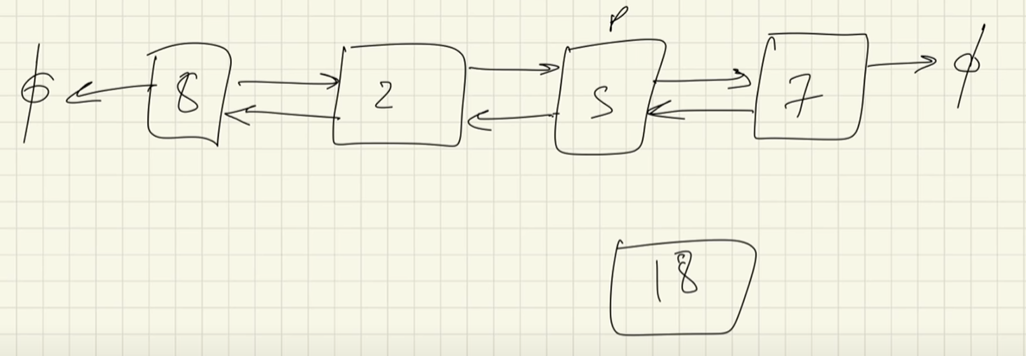 P
ϕ 8 2 5 7 ϕ
18